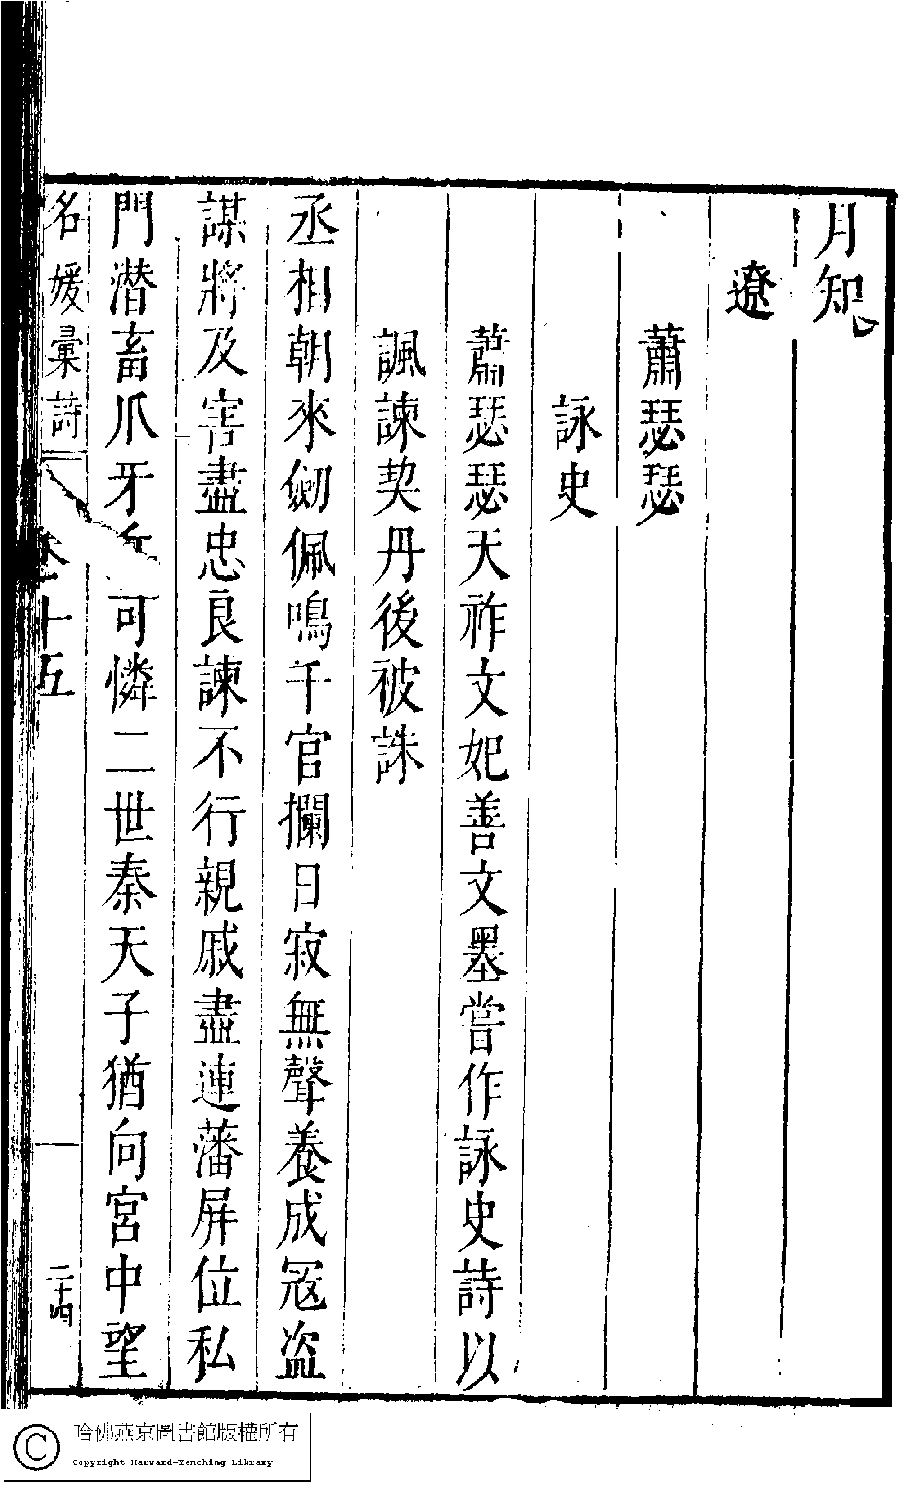 月知
遼
蕭瑟瑟
詠史
蕭瑟瑟天祚文妃善文墨嘗作詠史詩以
諷諫契丹後被誅
丞相朝來劒佩鳴千官攔日寂無聲養成冦盜
謀將及害盡忠良諫不行親戚盡連藩屏位私
門潜畜爪牙兵可憐二世秦天子猶向宮中望
名媛彙詩 卷十五 二十四
哈佛燕京圖書館版權所有
Copyright Harvard-Yenching Library